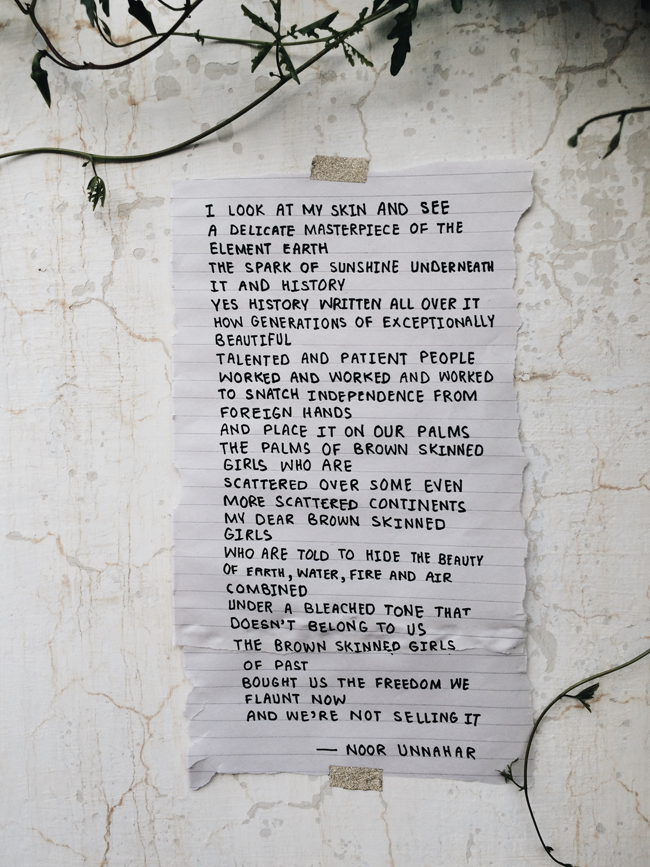 I LOOK AT MY SKIN AND SEE
A DELICATE MASTERPIECE OF THE
ELEMENT EARTH
THE SPARK OF SUNSHINE UNDERNEATH
IT AND HISTORY
YES HISTORY WRITTEN ALL OVER IT
HOW GENERATIONS OF EXCEPTIONALLY
BEAUTIFUL
TALENTED AND PATIENT PEOPLE
WORKED AND WORKED AND WORKED
TO SNATCH INDEPENDENCE FROM
FOREIGN HANDS
AND PLACE IT ON OUR PALMS
THE PALMS OF BROWN SKINNED
GIRLS WHO ARE
SCATTERED OVER SOME EVEN
MORE SCATTERED CONTINENTS
MY DEAR BROWN SKINNED
GIRLS
WHO ARE TOLD TO HIDE THE BEAUTY
OF EARTH, WATER, FIRE AND AIR
COMBINED
UNDER A BLEACHED TONE THAT
DOESN'T BELONG TO US
THE BROWN SKINNED GIRLS
OF PAST
BOUGHT US THE FREEDOM WE
FLAUNT NOW
AND WE'RE NOT SELLING IT
— NOOR UNNAHAR